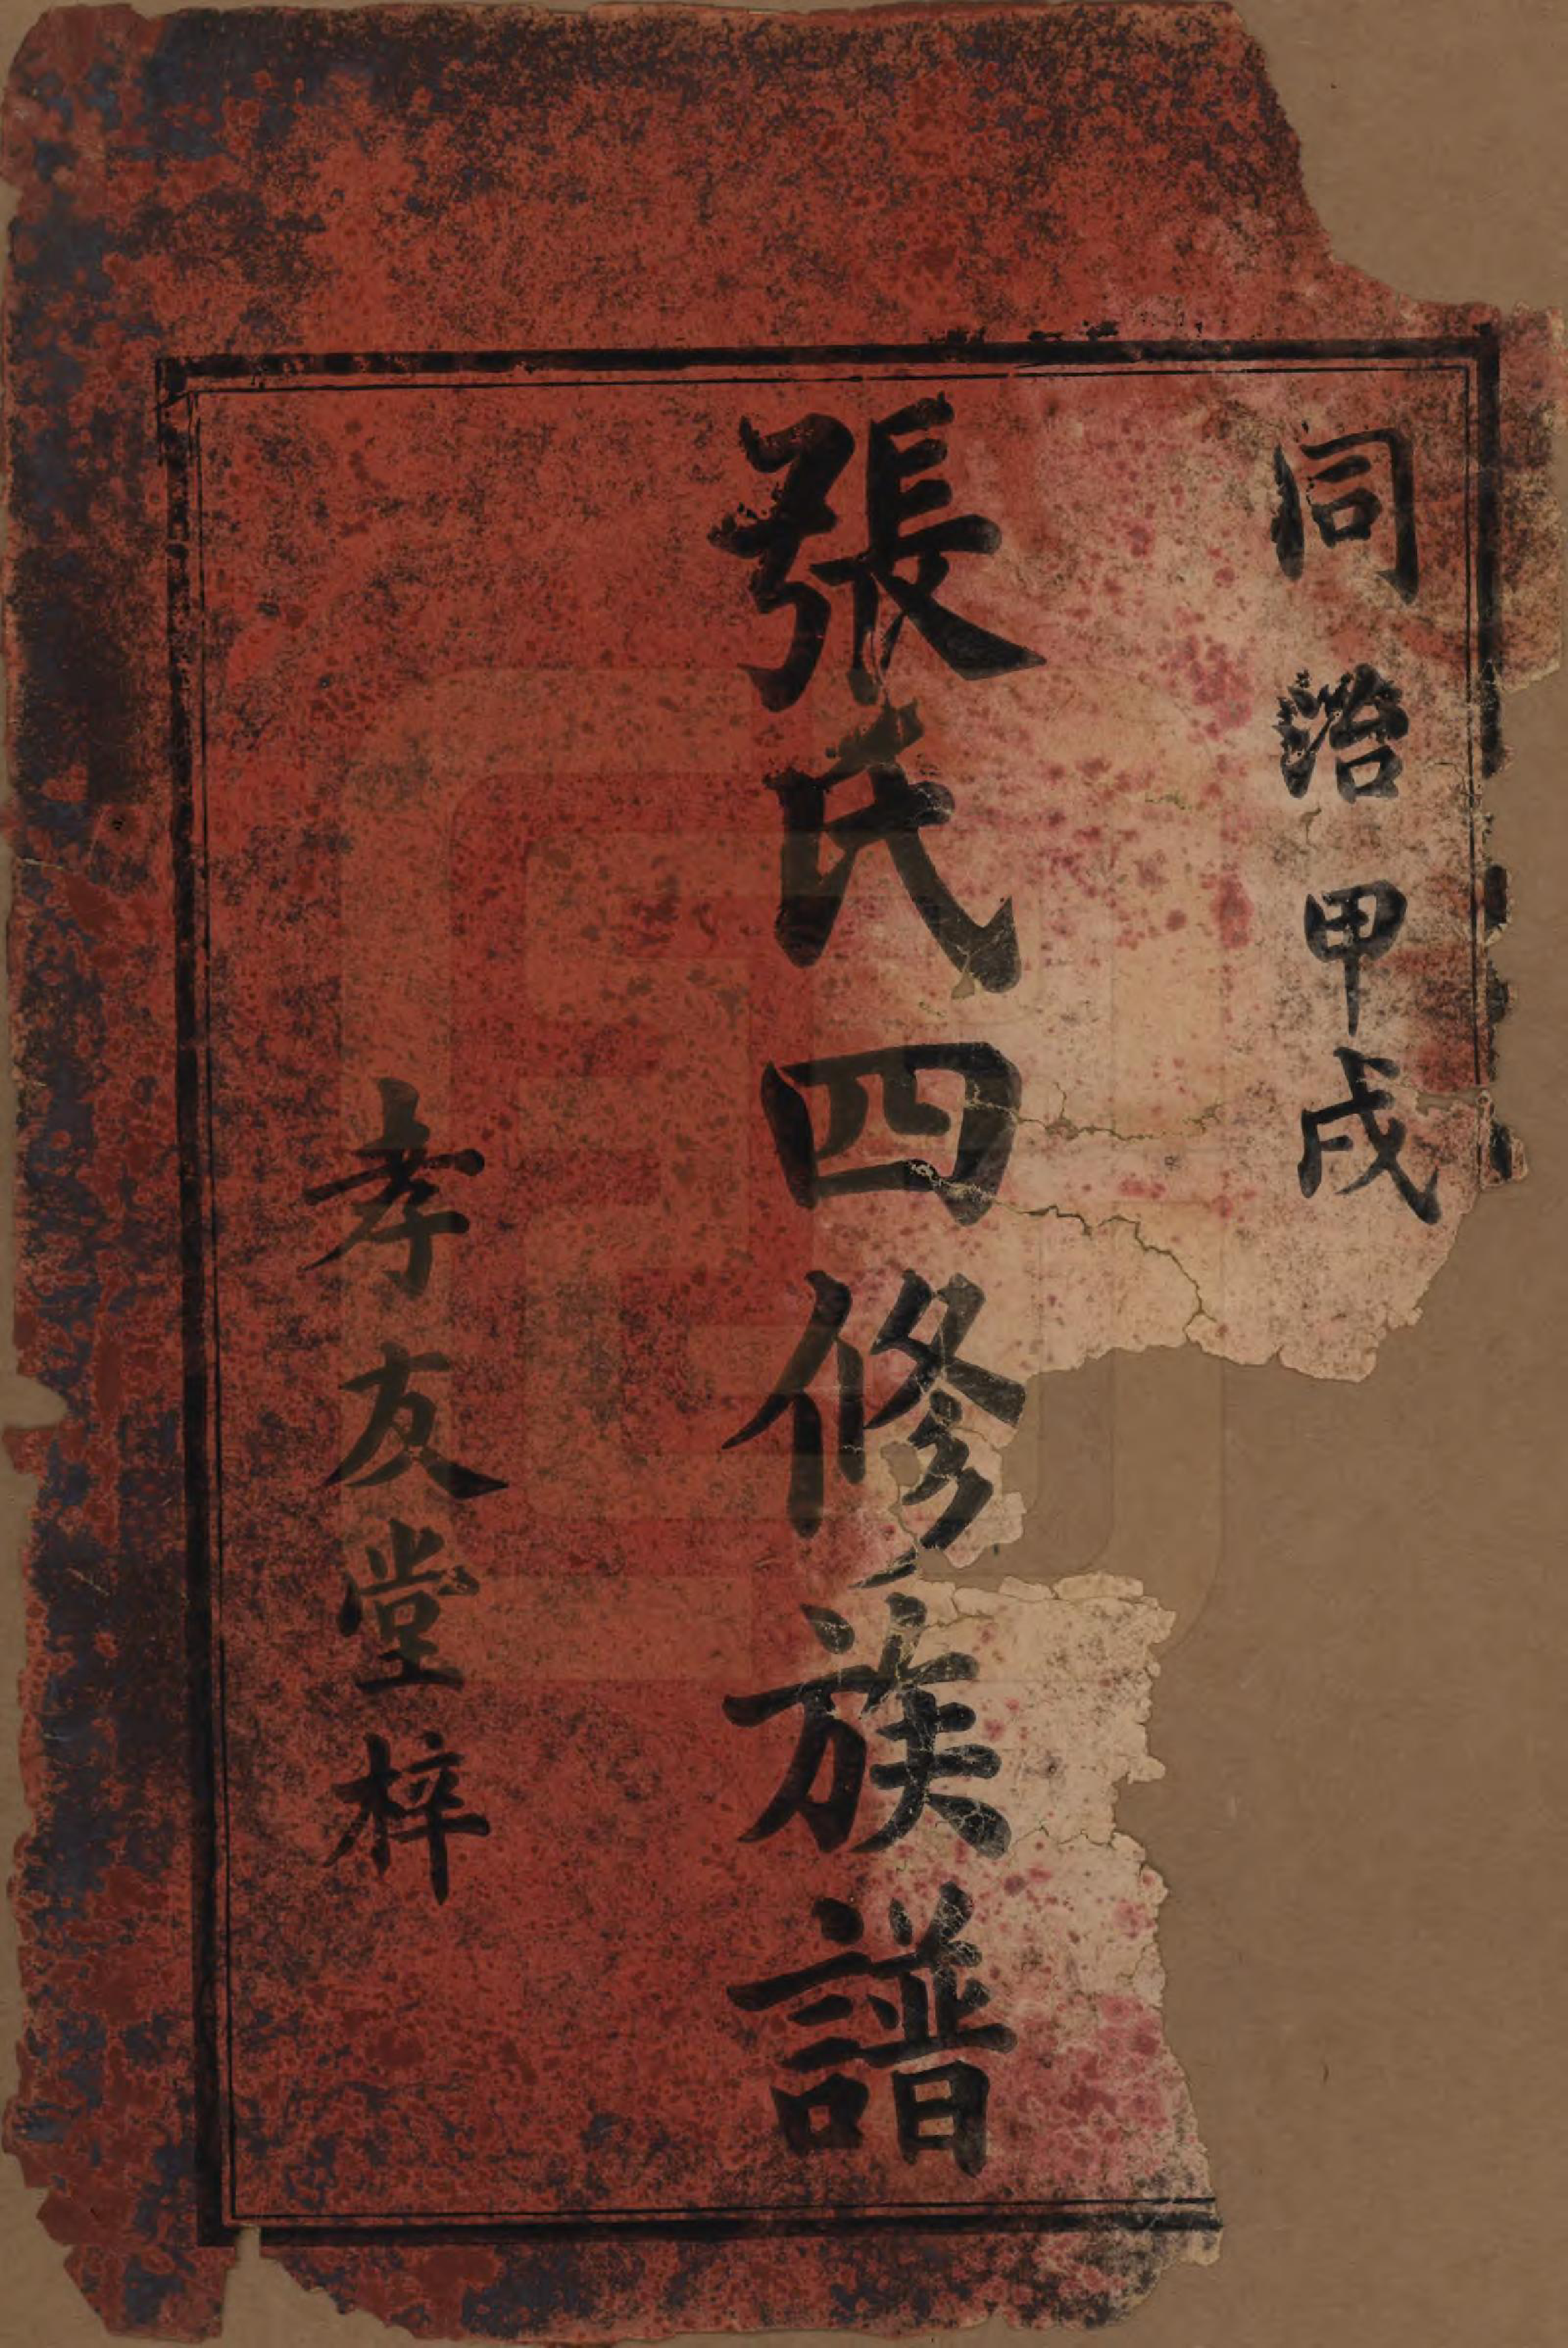 同治甲戌
張氏四修族譜
孝友堂梓